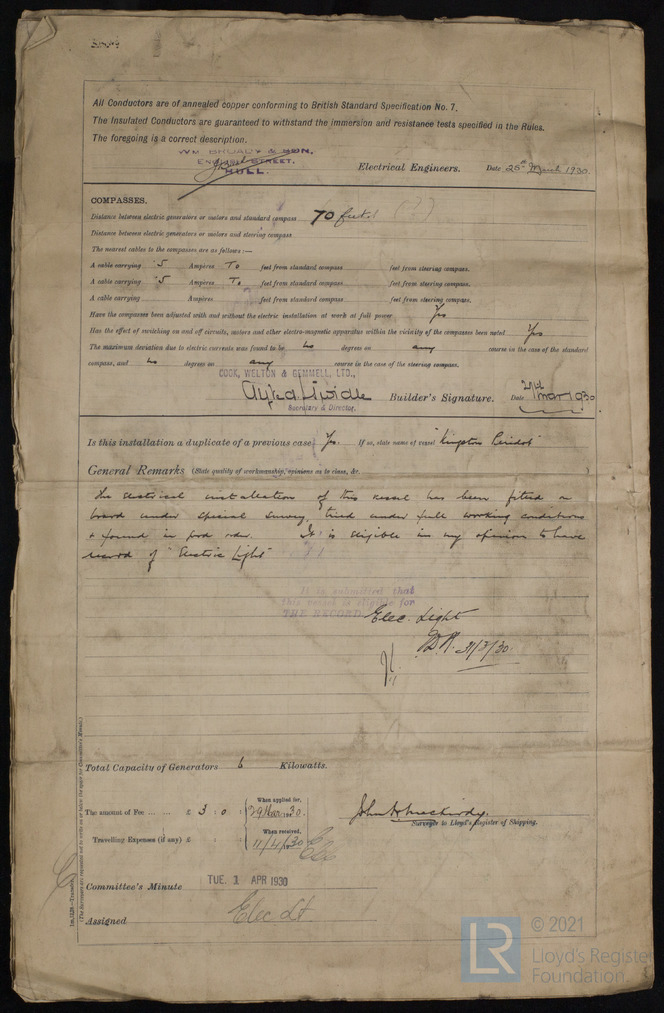 All Conductors are of annealed copper conforming to British Standard Specification No. 7.
The Insulated Conductors are guaranteed to withstand the immersion and resistance tests specified in the Rules.
The foregoing is a correct description.
WM BROADY & SON,
ENGLISH STREET,
HULL.
Electrical Engineers. Date 25th March 1930.
COMPASSES.
Distance between electric generators or motors and standard compass 70 feet
Distance between electric generators or motors and steering compass
The nearest cables to the compasses are as follows:—
A cable carrying .5 Ampères To feet from standard compass feet from steering compass.
A cable carrying .5 Ampères To feet from standard compass feet from steering compass.
A cable carrying Ampères feet from standard compass feet from steering compass.
Have the compasses been adjusted with and without the electric installation at work at full power Yes
Has the effect of switching on and off circuits, motors and other electro-magnetic apparatus within the vicinity of the compasses been noted Yes
The maximum deviation due to electric currents was found to be no degrees on any course in the case of the standard
compass, and no degrees on any course in the case of the steering compass.
COOK, WELTON & GEMMELL, LTD.,
Builder's Signature. Date Mar 1930
Secretary & Director.
Is this installation a duplicate of a previous case Yes. If so, state name of vessel "Kingston Peridot"
General Remarks (State quality of workmanship, opinions as to class, &c.
The electrical installation of this vessel has been fitted on
board under special survey, tried under full working conditions
+ found in good order. It is eligible in my opinion to have
record of "Electric Light"
It is submitted that
this vessel is eligible for
THE RECORD. Elec. Light
31/3/30.
Total Capacity of Generators 6 Kilowatts.
The amount of Fee ... ... £ 3 : 0 : When applied for, 29 Mar 1930.
Travelling Expenses (if any) £ : : When received, 11/4/1930
Surveyor to Lloyd's Register of Shipping.
Committee's Minute TUE. 1 APR 1930
Assigned Elec Lt
(The Surveyors are requested not to write on or below the space for Committee's Minute.)
LR
© 2021
Lloyd's Register
Foundation